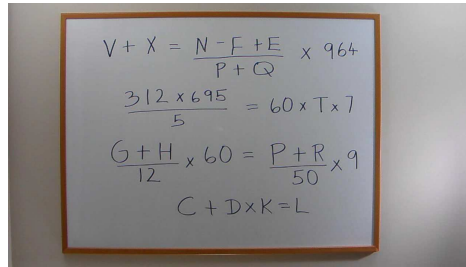 V + X = (N - F + E)/(P + Q) × 964
(312 × 695)/5 = 60 × T × 7
(G + H)/12 × 60 = (P + R)/50 × 9
C + D × K = L